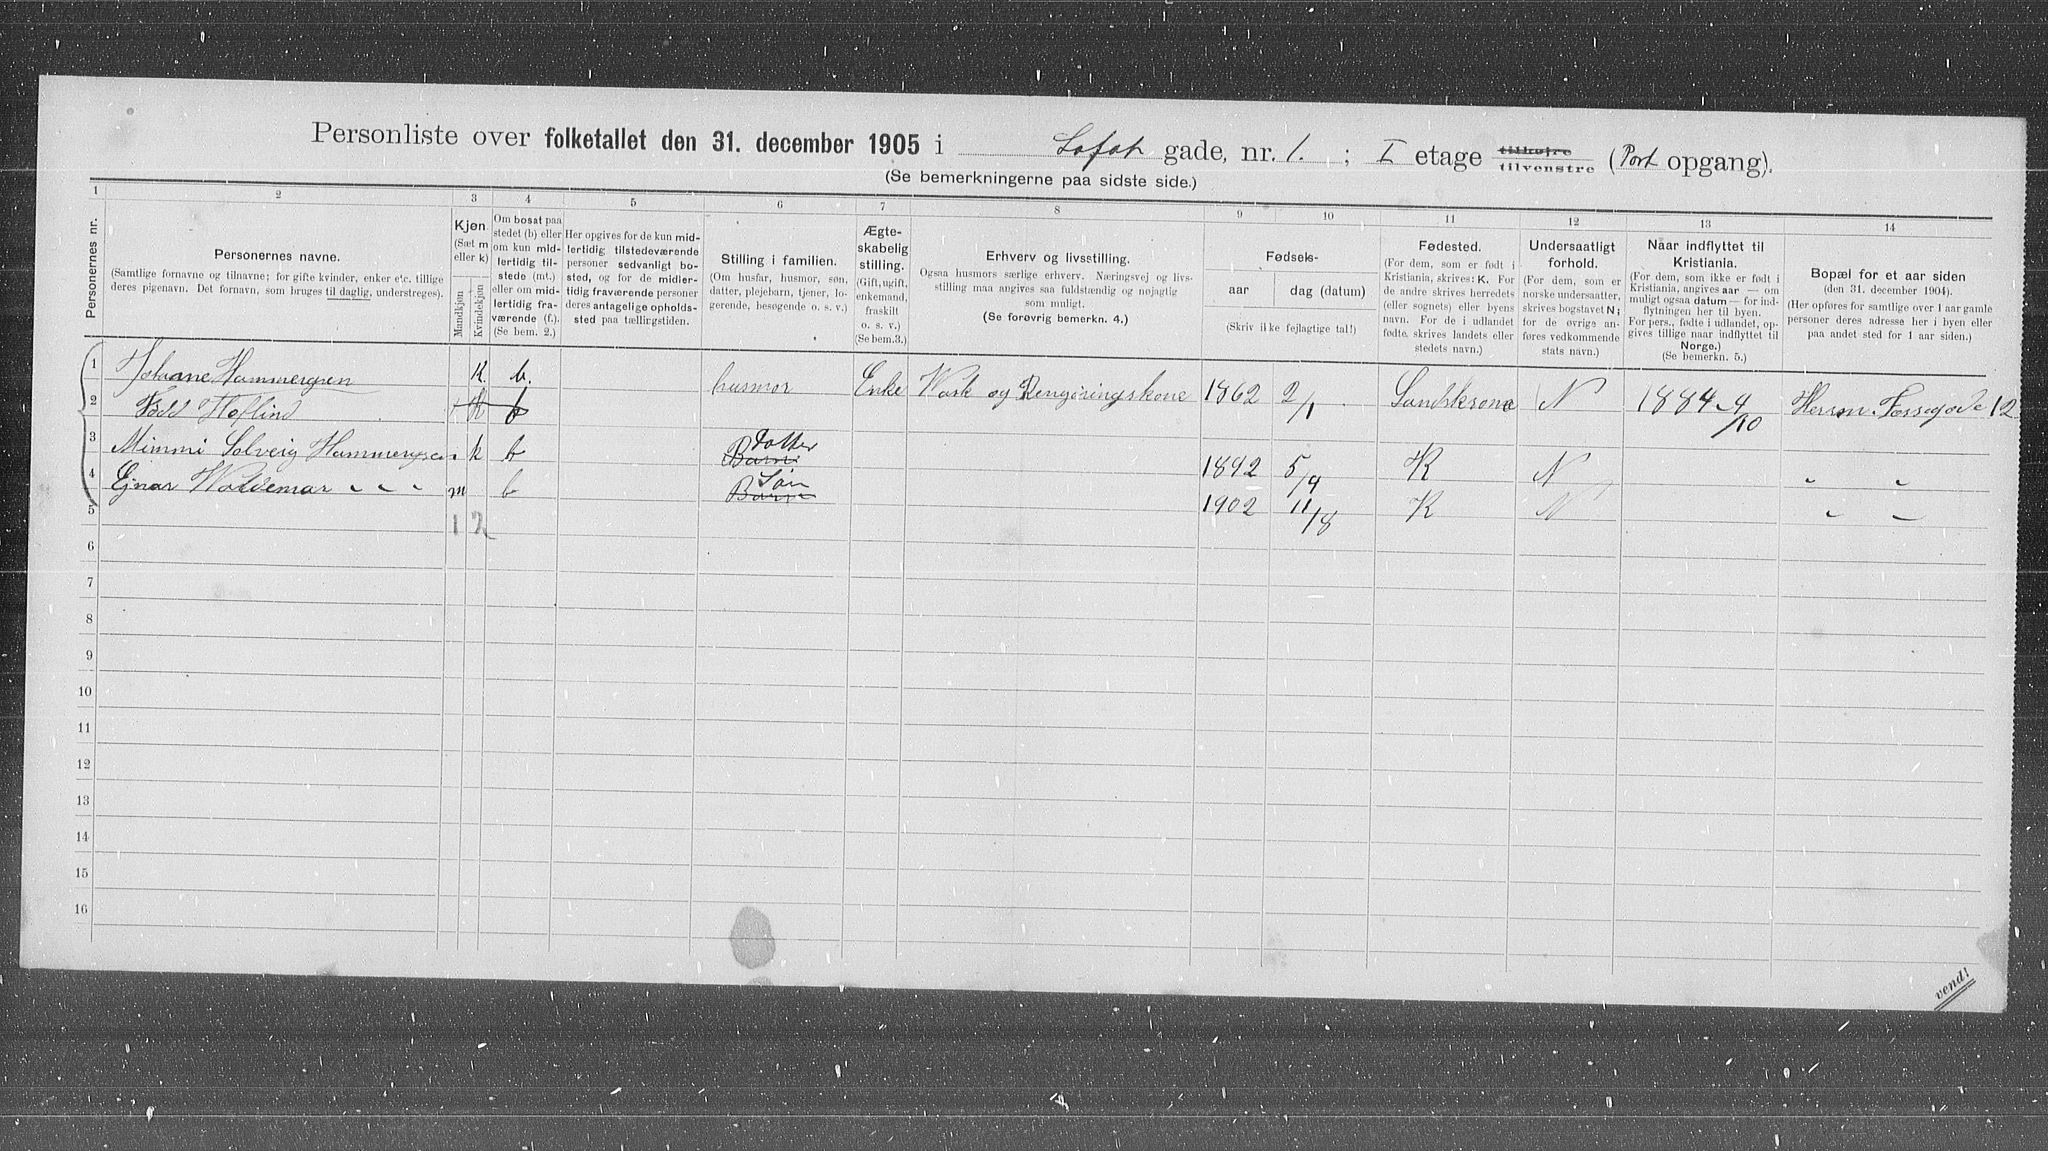 Personliste over folketallet den 31. december 1905 i Lofot gade, nr. 1. ; I etage tilhøjre tilvenstre (Port opgang).
(Se bemerkningerne paa sidste side.)
1 2 3 4 5 6 7 8 9 10 11 12 13 14
Personernes nr.
Personernes navne.
(Samtlige fornavne og tilnavne; for gifte kvinder, enker etc. tillige
deres pigenavn. Det fornavn, som bruges til daglig, understreges).
Kjøn.
(Sæt m
eller k)
Mandkjøn
Kvindekjøn
Om bosat paa
stedet (b) eller
om kun mid-
lertidig til-
stede (mt.)
eller om mid-
lertidig fra-
værende (f.).
(Se bem. 2.)
Her opgives for de kun mid-
lertidig tilstedeværende
personer sedvanligt bo-
sted, og for de midler-
tidig fraværende personer
deres antagelige opholds-
sted paa tællingstiden.
Stilling i familien.
(Om husfar, husmor, søn,
datter, plejebarn, tjener, lo-
gerende, besøgende o. s. v.)
Ægte-
skabelig
stilling.
(Gift, ugift,
enkemand,
fraskilt
o. s. v.)
(Se bem.3.)
Erhverv og livsstilling.
Ogsaa husmors særlige erhverv. Næringsvej og livs-
stilling maa angives saa fuldstændig og nøjagtig
som muligt.
(Se forøvrig bemerkn. 4.)
Fødsels-
aar dag (datum)
(Skriv ikke fejlagtige tal!)
Fødested.
(For dem, som er født i
Kristiania, skrives: K. For
de andre skrives herredets
(eller sognets) eller byens
navn. For de i udlandet
fødte, skrives landets eller
stedets navn.)
Undersaatligt
forhold.
(For dem, som er
norske undersaatter,
skrives bogstavet N;
for de øvrige an-
føres vedkommende
stats navn.)
Naar indflyttet til
Kristiania.
(For dem, som ikke er født i
Kristiania, angives aar — om
muligt ogsaa datum — for ind-
flytningen her til byen.
For pers., fødte i udlandet, op-
gives tillige naar indflyttet til
Norge.)
(Se bemerkn. 5.)
Bopæl for et aar siden
(den 31. december 1904).
(Her opføres for samtlige over 1 aar gamle
personer deres adresse her i byen eller
paa andet sted for 1 aar siden.)
1 Johanne Hammergren K. b. husmor Enke Vask og Rengøringskone 1862 2/1 Landskrona N 1884 4/10 Herm. Fossgade 12
2 Född Höflind K b
3 Mimmi Solveig Hammergren k b Barn Datter 1892 5/9 K N " "
4 Ejnar Waldemar " " " m b Barn Søn 1902 11/8 K N " "
5 1 2
6
7
8
9
10
11
12
13
14
15
16
vend!